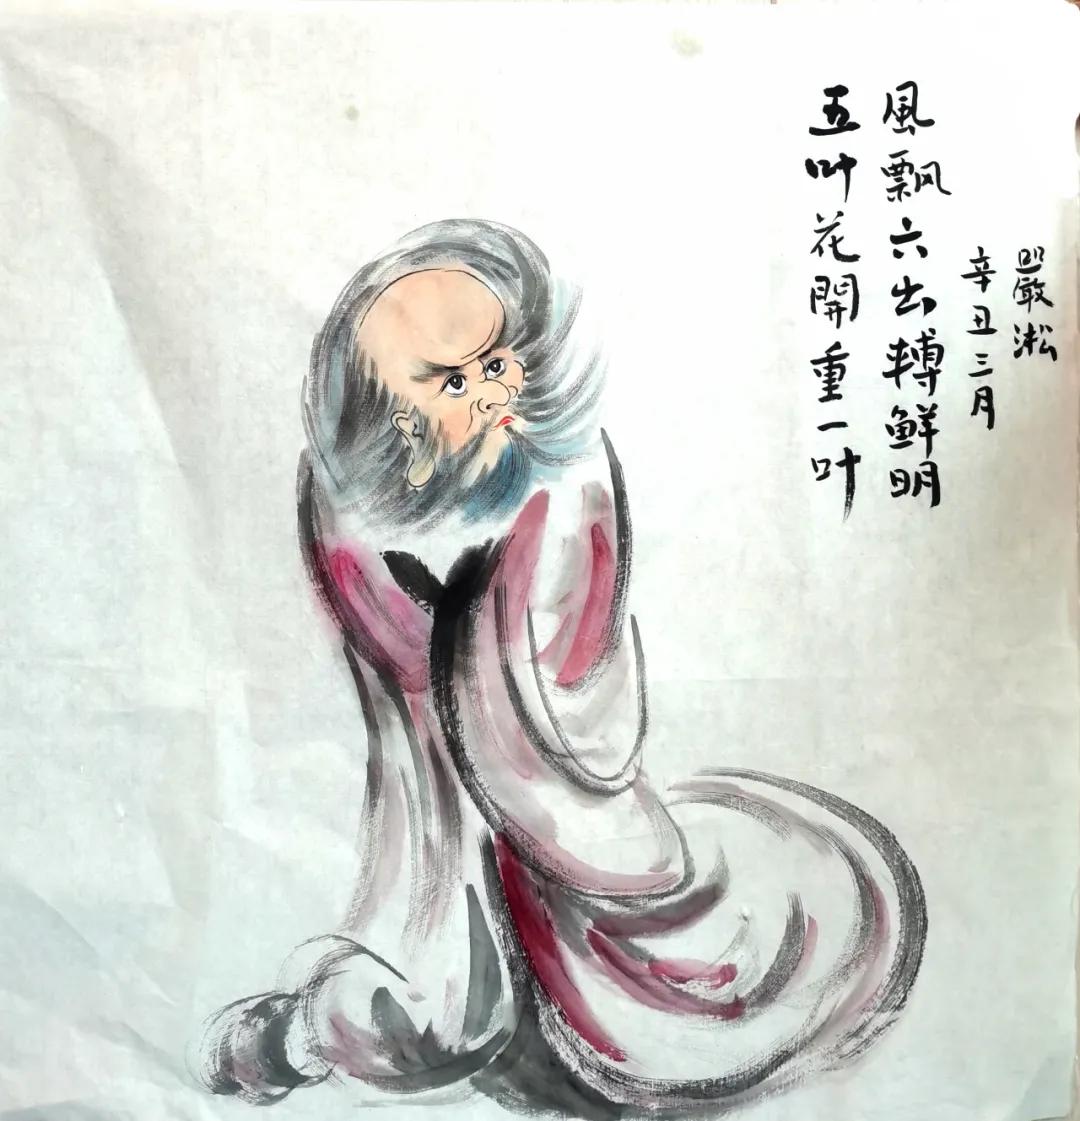 五叶花開重一叶
風飘六出轉鮮明
辛丑三月
嚴淞